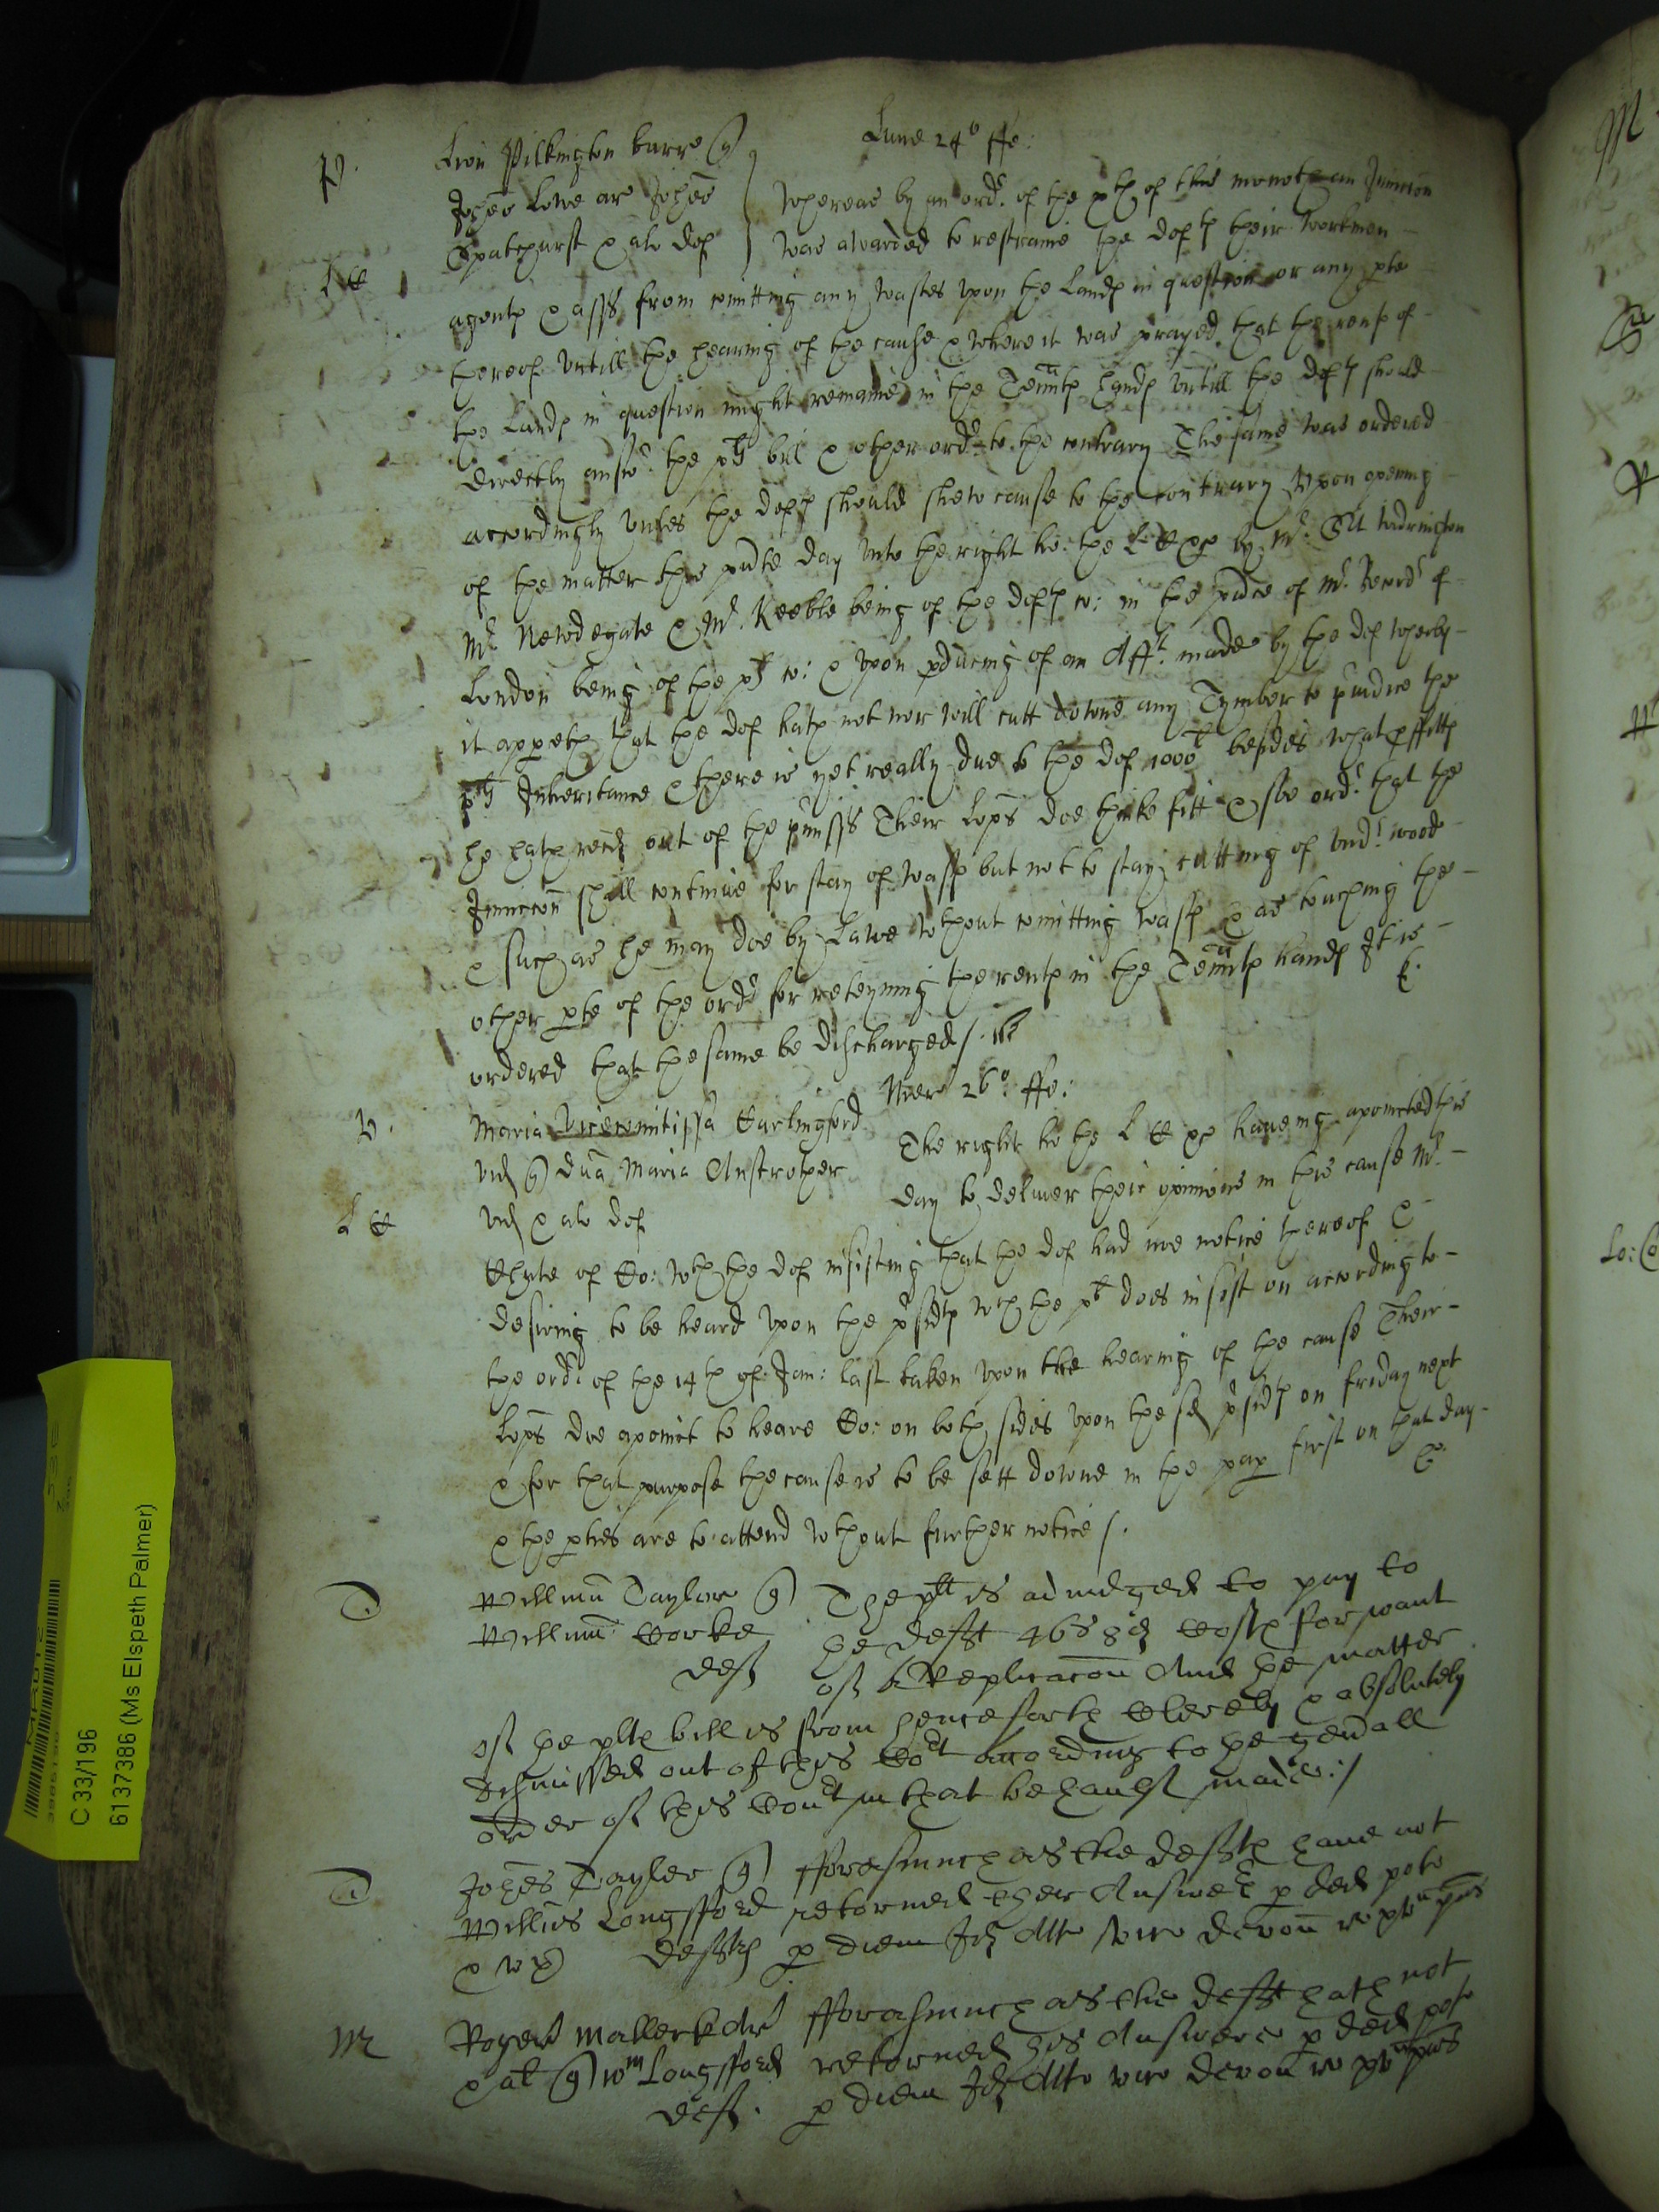 Lune 24° ffe:
P. Leon Pilkington barr
Johes Lowe ar Johes } Whereas by an ordr. of the xth of this moneth an Iniuncon
Spatchurst & als def } was awarded to restraine the defts their workmen
L CC agents & asss from comitting any wastes vpon the Lands in question or any pte
thereof vntill the hearing of the cause & where it was prayed that the rents of
the Lands in question might remaine in the Tennts hands vntill the defts should
directly answr. the plts bill & other ordr. to the contrary The same was ordered
accordingly vnles the defts should shew cause to the contrary Vpon opening
of the matter this psnte day vnto the right ho: the L CC by Mr. Widrington
Mr. Newdegate & Mr. Keeble being of the defts co: in the psnce of Mr. Recordr of
London being of the plts co: & vpon pducing of an Afft. made by the def wherby
it appeth that the def hath not nor will cutt downe any Tymber to piudice the
plts Inheritance & there is yet really due to the def 1000l besides what pffitts
he hath recd out of the pmisss Their Lops doe thinke fitt & soe ordr. that the
Iniuncon shall continue for stay of wast but not to stay cutting of vndr. wood
& such as he may doe by Lawe wthout comitting wast & as touching the
other pte of the ordr for reteyning the rents in the Tennts hands It is
ordered that the same be discharged /.
Mer 26°: ffe:
V. Maria Vicecomitissa Carlingford The right ho the L CC haueing apointed this
vid dna Maria Anstrother day to deliuer their opinions in this cause Mr.
L CC vid & als def
Chute of Co: wth the def insisting that the def had noe notice thereof &
desiring to be heard vpon the psidts wch the plt does insist on according to
the ordr. of the 14th of Jan: last taken vpon the hearing of the cause Their
Lops doe apoint to heare Co: on both sides vpon the sd psidts on friday next
& for that purpose the cause is to be sett downe in the pap first on that day
& the pties are to attend wthout further notice /.
T. Willmu Taylor The plt is adiudged to pay to
Willmu Cooke the deft 46s 8d Costs for want
deft of a Replicacon And the matter
of the plts bill is from henceforth Clerely & absolutely
dismissed out of this Cort according to the genall
order of this Court in that behaulf made:/
T. Johes Tayler fforasmuch as the defts haue not
Willus Longfford retorned their Answere p ded pote
& ux defts p diem Id Atte vers devon
M Rogerus Mallerk Ar fforasmuch as the deft hath not
& al wm Longfford retorned his Answere p ded pote
deft. p diem Id Atte vers devon
C 33/196
6137386 (Ms Elspeth Palmer)